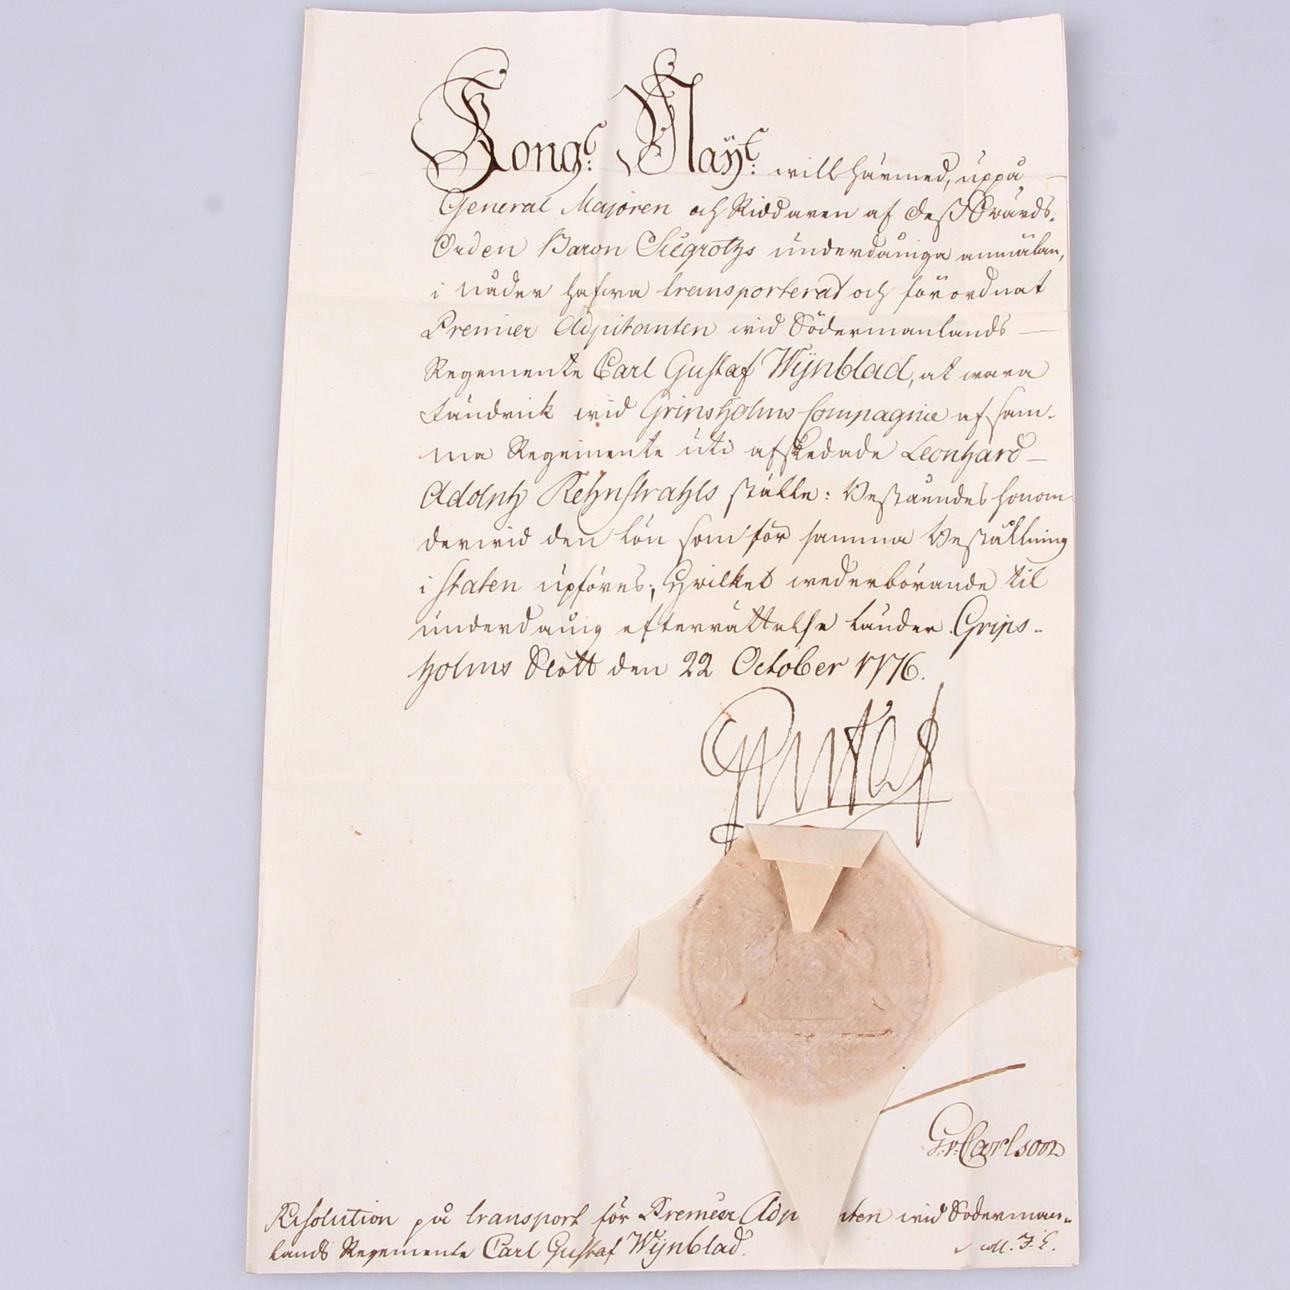 Kongl. Maÿt. will härmed, uppå
General Majoren och Riddaren af Deß Swärds-
Orden Baron Siegroths underdåniga anmälan,
i nåder hafwa transporterat och förordnat
Premier Adjutanten wid Södermanlands
Regemente Carl Gustaf Wijnblad, at wara
Fändrick wid Gripsholms Compagnie af sam-
ma Regemente uti afskedade Leonhard
Adolph Rehnstrahls ställe: Bestäendes honom
derwid den lön som för samma Beställning
i staten upföres; Hwilket wederbörande til
underdånig efterrättelse länder. Grips-
holms Slott den 22 October 1776.
Gustaf
Gr: Carlson
Resolution på transport för Premier Adju tanten wid Söderman-
lands Regemente Carl Gustaf Wijnblad.